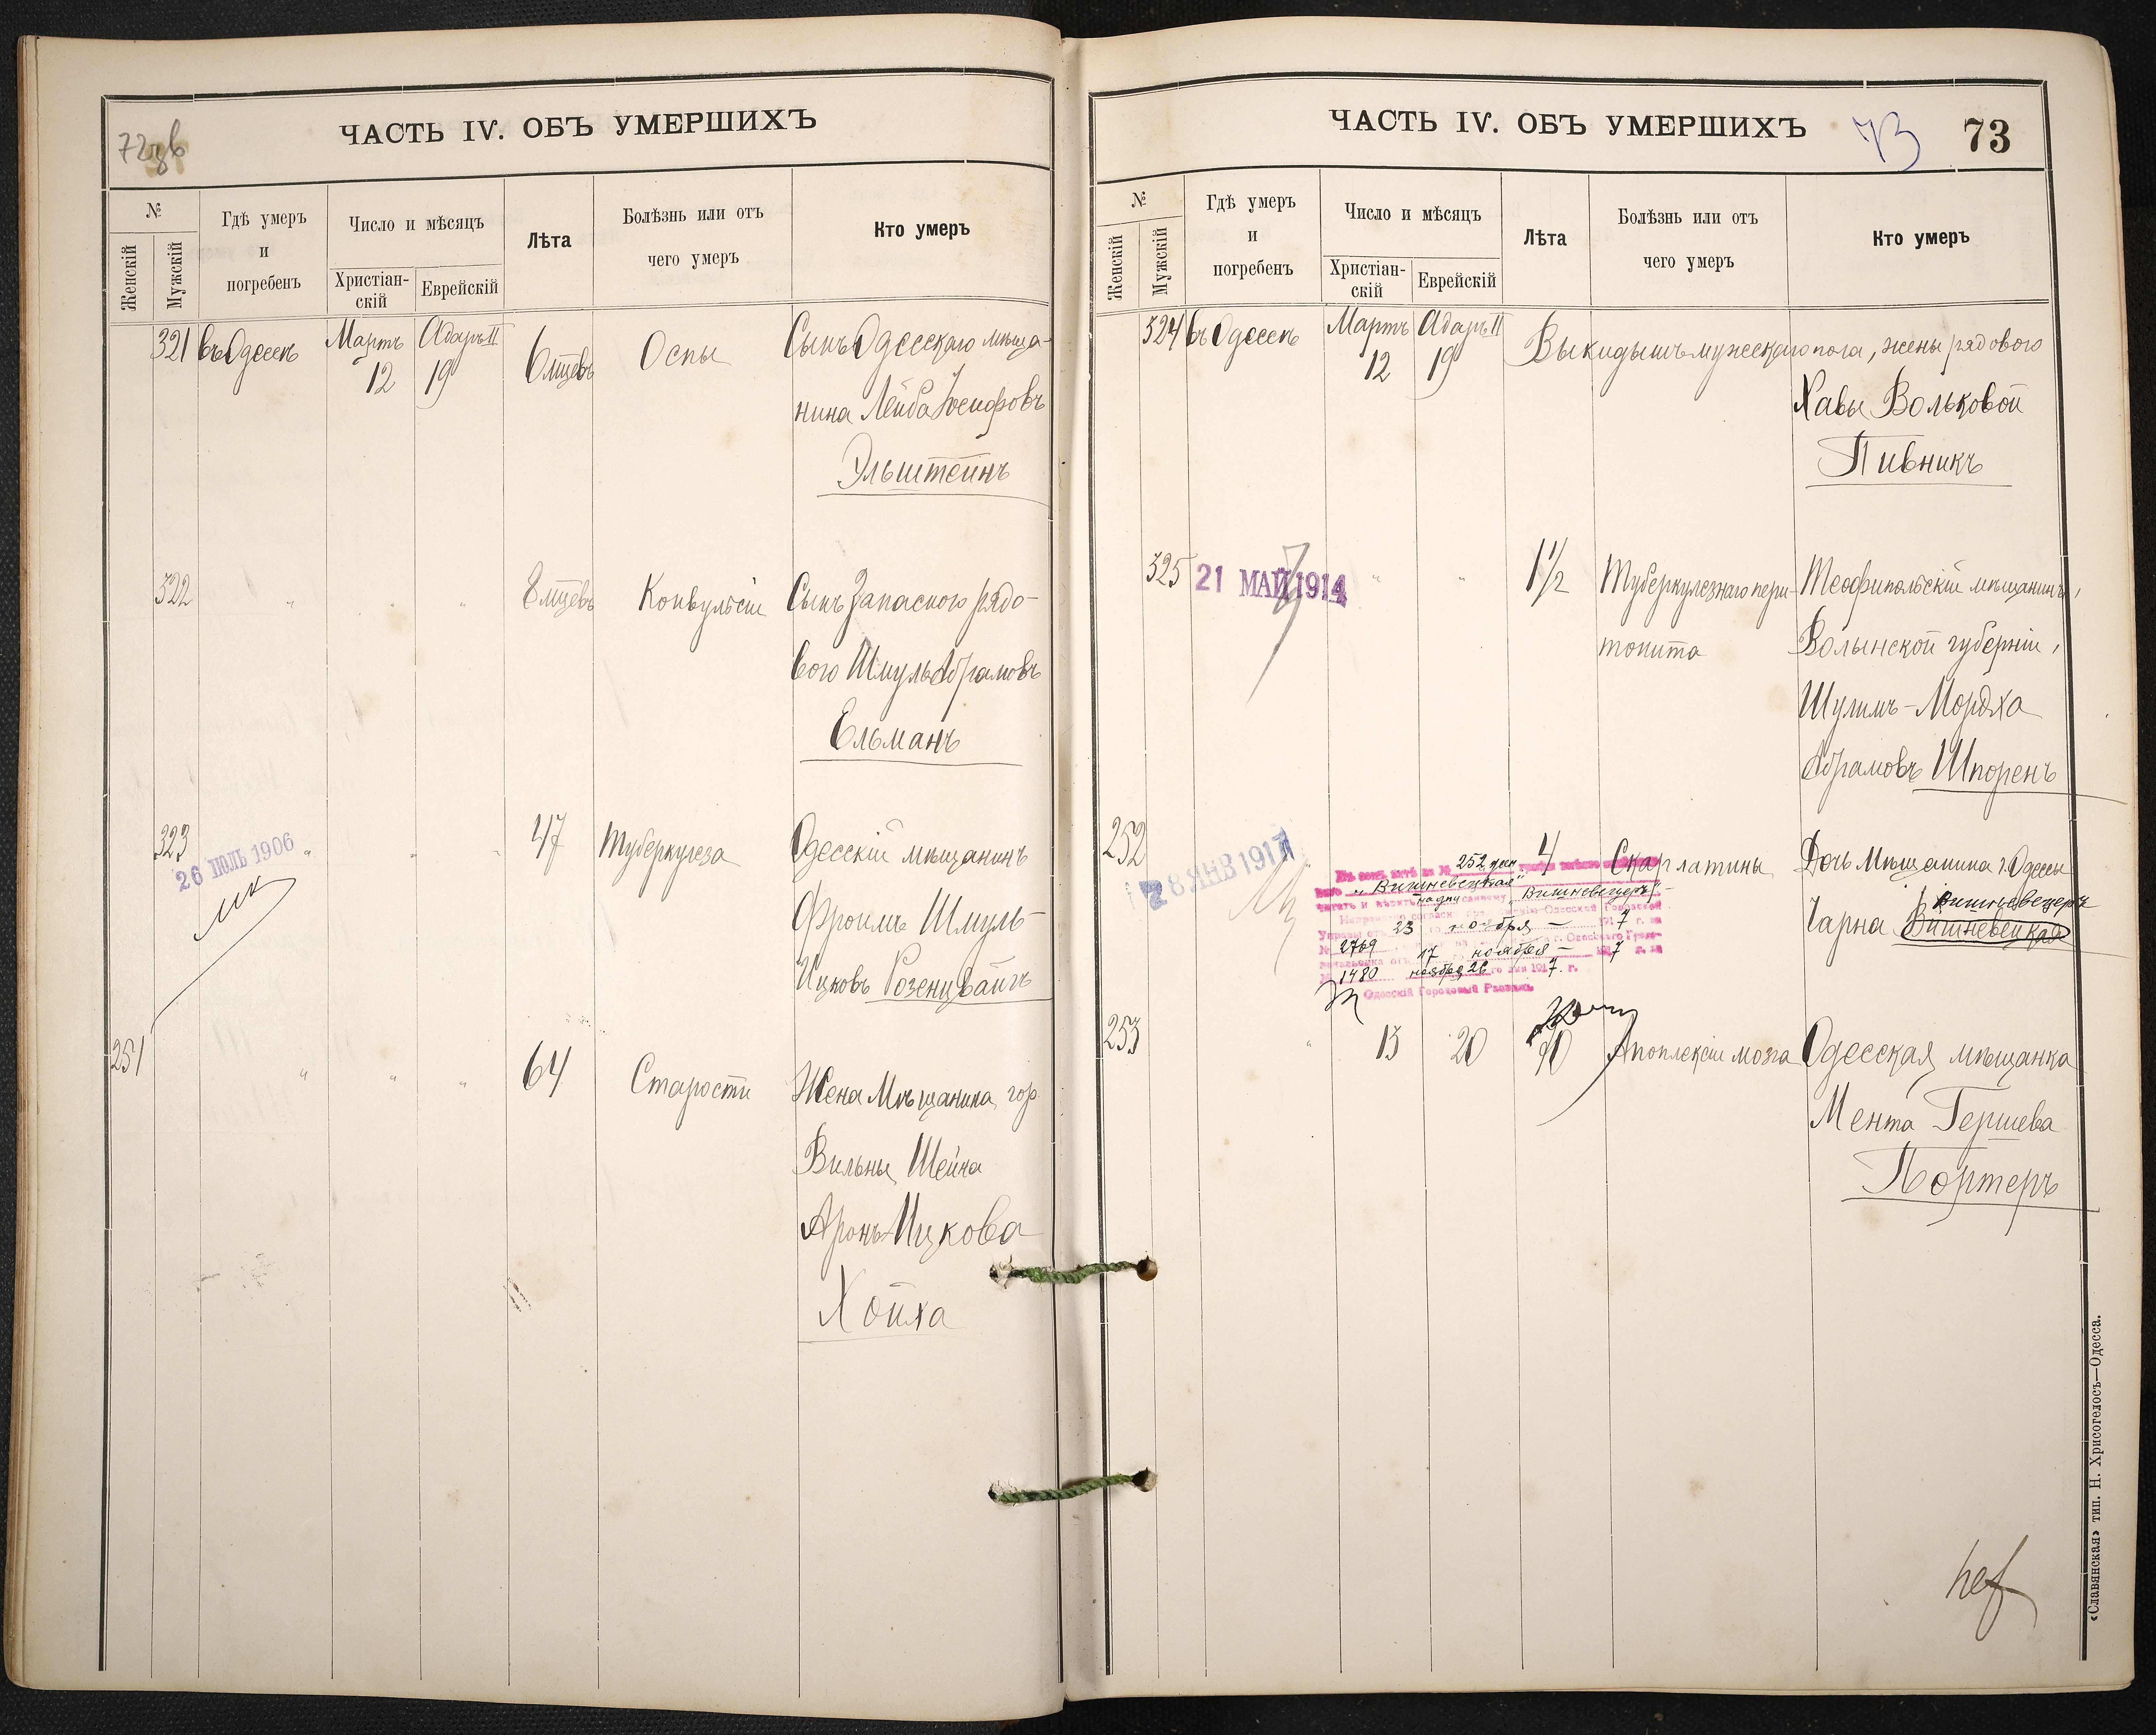 72 зв
ЧАСТЬ IV. ОБЪ УМЕРШИХЪ
№
Женскій
Мужскій
Гдѣ умеръ
и
погребенъ
Число и мѣсяцъ
Христіан-
скій
Еврейскій
Лѣта
Болѣзнь или отъ
чего умеръ
Кто умеръ
321 въ Одессѣ Мартъ 12 Адаръ II 19 6 мцевъ Оспы Сынъ Одесскаго мѣща-
нина Лейба Іосифовъ
Эльштейнъ
322 " " " 8 мцевъ Конвульсіи Сынъ Запасного рядо-
вого Шмуль Абрамовъ
Ельманъ
323 " " " 47 Туберкулеза Одесскій мѣщанинъ
26 ІЮЛЬ 1906
Фроимъ Шмуль-
Ицковъ Розенцвайгъ
251 " " " 64 Старости Жена Мѣщанина гор.
Вильны Шейна
Аронъ-Ицкова
Хойха
ЧАСТЬ IV. ОБЪ УМЕРШИХЪ 73 73
№
Женскій
Мужскій
Гдѣ умеръ
и
погребенъ
Число и мѣсяцъ
Христіан-
скій
Еврейскій
Лѣта
Болѣзнь или отъ
чего умеръ
Кто умеръ
324 въ Одессѣ Мартъ 12 Адаръ II 19 Выкидышъ мужескаго пола, жены рядового
Хавы Вольковой
Пивникъ
325 21 МАЙ 1914 " " 1 1/2 Туберкулезнаго пери-
тонита
Теофипольскій мѣщанинъ,
Волынской губерніи,
Шулимъ-Мордха
Абрамовъ Шпоренъ
252 28 ЯНВ 1917 4 Скарлатины Дочь Мѣщанина г. Одессы
Вишневецеръ
Чарна Вишневецкая
252
"Вишневецкая" "Вишневецеръ"
23 ноября 1917 г.
№ 2769 17 ноября 1917 г.
№ 1480 ноября 26 го дня 1917 г.
Одесскій Городовой Раввинъ
253 " 13 20 70 Апоплексіи мозга Одесская мѣщанка
Мента Гершева
Портеръ
«Славянская» тип. Н. Хрисогелосъ—Одесса.